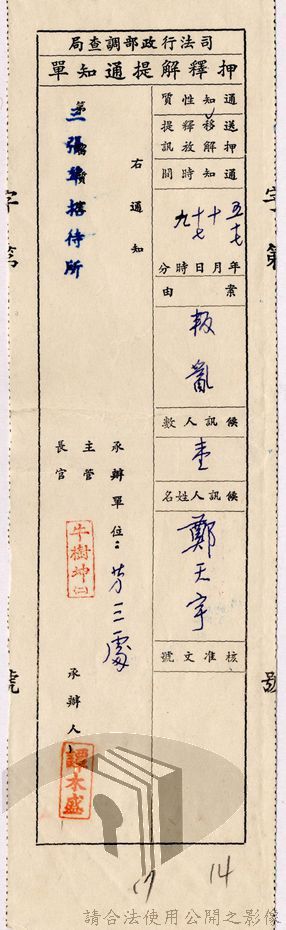 司法行政部調查局
押釋解提通知單
通知性質
送移釋提
押解放訊
通知時間
五十七年十月十七日九時分
案由
叛亂
候訊人數
壹
候訊人姓名
鄭天宇
核准文號
右通知
第
三張犁招待所
承辦單位：第三處
主管
長官
牛樹坤
承辦人
譚木盛
字第
號
字第
號
14
請合法使用公開之影像